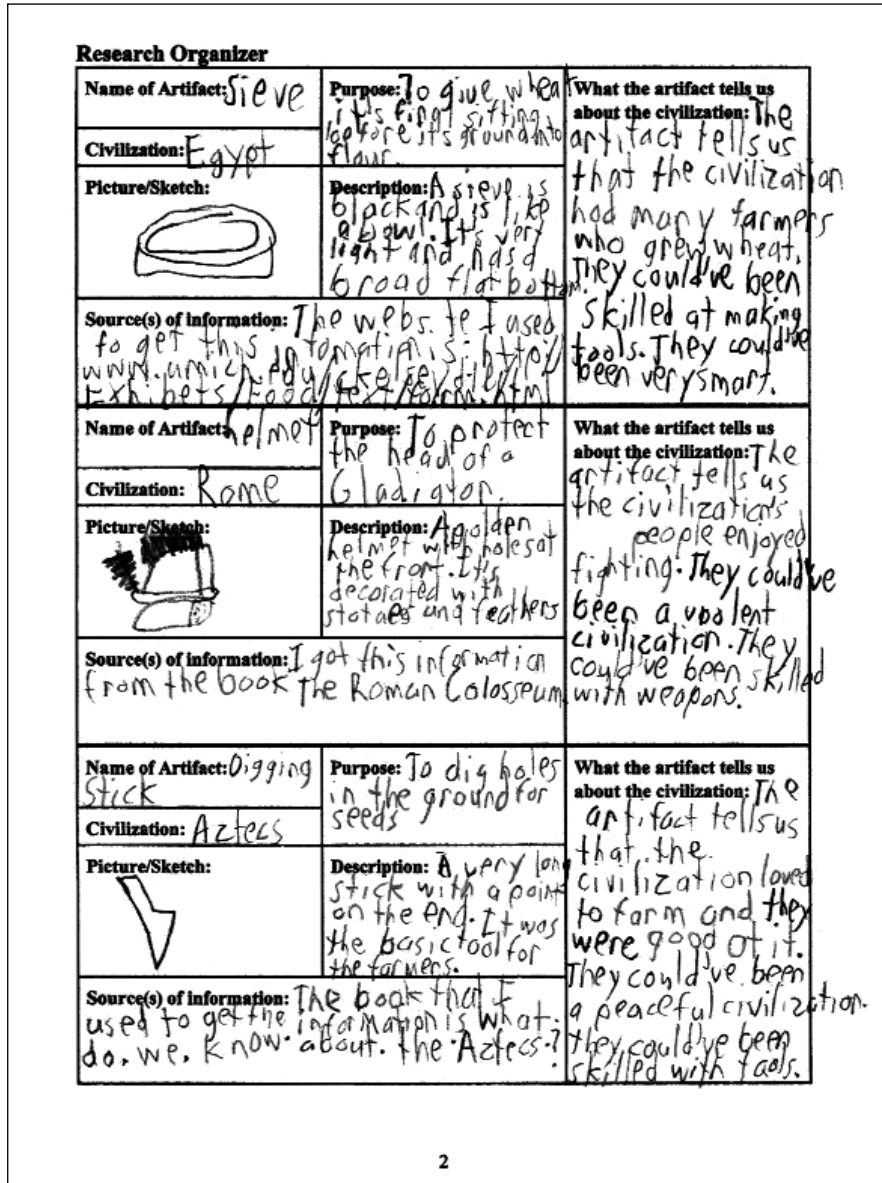 Research Organizer
Name of Artifact: Sieve
Civilization: Egypt
Purpose: To give wheat
it's final sifting
before it's ground into
flour.
Picture/Sketch:
Description: A sieve is
black and is like
a bowl. It's very
light and has a
broad flat bottom.
Source(s) of information: The website I used
to get this information is: http://
www.umich.edu/
Exhibets/Food/text/farm.html
What the artifact tells us
about the civilization: The
artifact tells us
that the civilization
had many farmers
who grew wheat.
They could've been
skilled at making
tools. They could've
been very smart.
Name of Artifact: helmet
Civilization: Rome
Purpose: To protect
the head of a
Gladiator.
Picture/Sketch:
Description: A golden
helmet with holes at
the front. It's
decorated with
statues and feathers
Source(s) of information: I got this information
from the book The Roman Colosseum
What the artifact tells us
about the civilization: The
artifact tells us
the civilization's
people enjoyed
fighting. They could've
been a
civilization. They
could've been skilled
with weapons.
Name of Artifact: Digging
Stick
Civilization: Aztecs
Purpose: To dig holes
in the ground for
seeds
Picture/Sketch:
Description: A very long
stick with a point
on the end. It was
the basic tool for
the farmers.
Source(s) of information: The book that I
used to get the information is what.
do. we. know. about. the. Aztecs?
What the artifact tells us
about the civilization: The
artifact tells us
that the
civilization loved
to farm and they
were good at it.
They could've been
a peaceful civilization.
they could've been
skilled with tools.
2